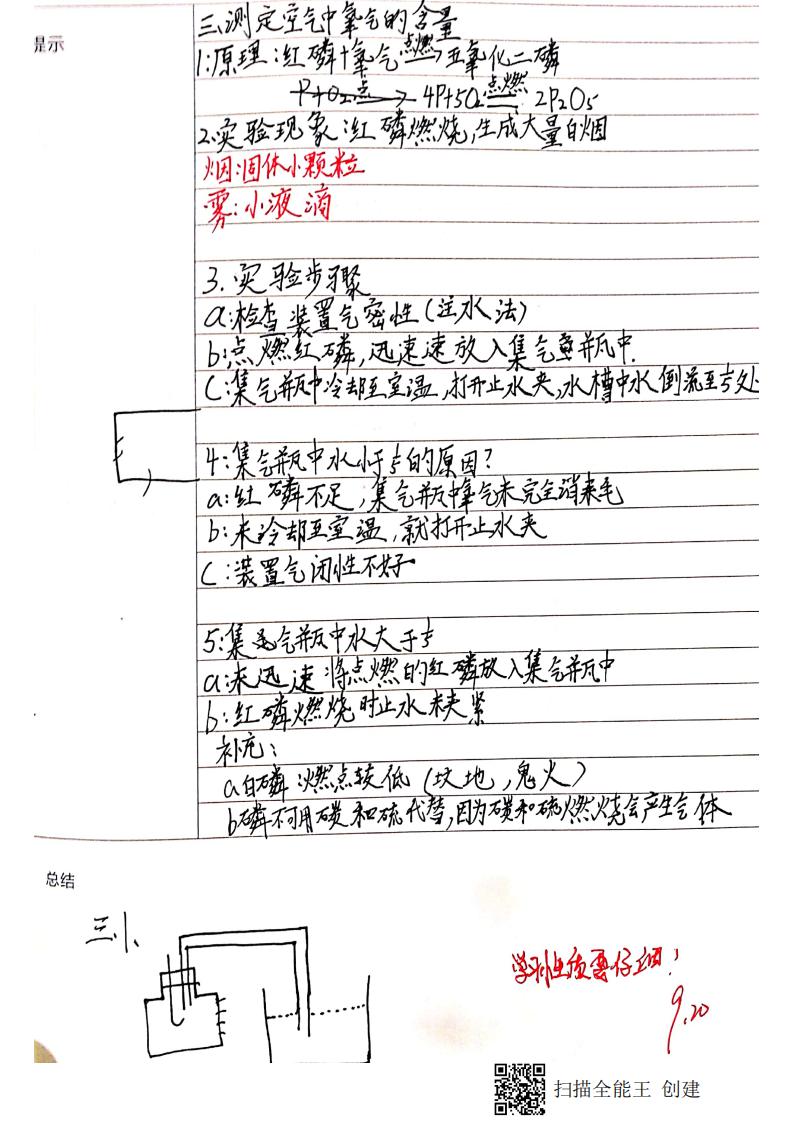 提示
三.测定空气中氧气的含量
1:原理:红磷+氧气 点燃→ 五氧化二磷
P+O₂ 点→ 4P+5O₂ 点燃= 2P₂O₅
2.实验现象:红磷燃烧,生成大量白烟
烟:固体小颗粒
雾:小液滴
3.实验步骤
a:检查装置气密性(注水法)
b:点燃红磷,迅速速放入集气瓶中.
C:集气瓶中冷却至室温,打开止水夹,水槽中水倒流至⅕处
4:集气瓶中水小于⅕的原因?
a:红磷不足,集气瓶中氧气未完全消耗
b:未冷却至室温,就打开止水夹
C:装置气闭性不好
5:集气瓶中水大于⅕
a:未迅速将点燃的红磷放入集气瓶中
b:红磷燃烧时止水未夹紧
补充:
a白磷:燃点较低(坟地,鬼火)
b磷不可用碳和硫代替,因为碳和硫燃烧会产生气体
总结
三.1、
学习性质要仔细!
9.20
扫描全能王 创建